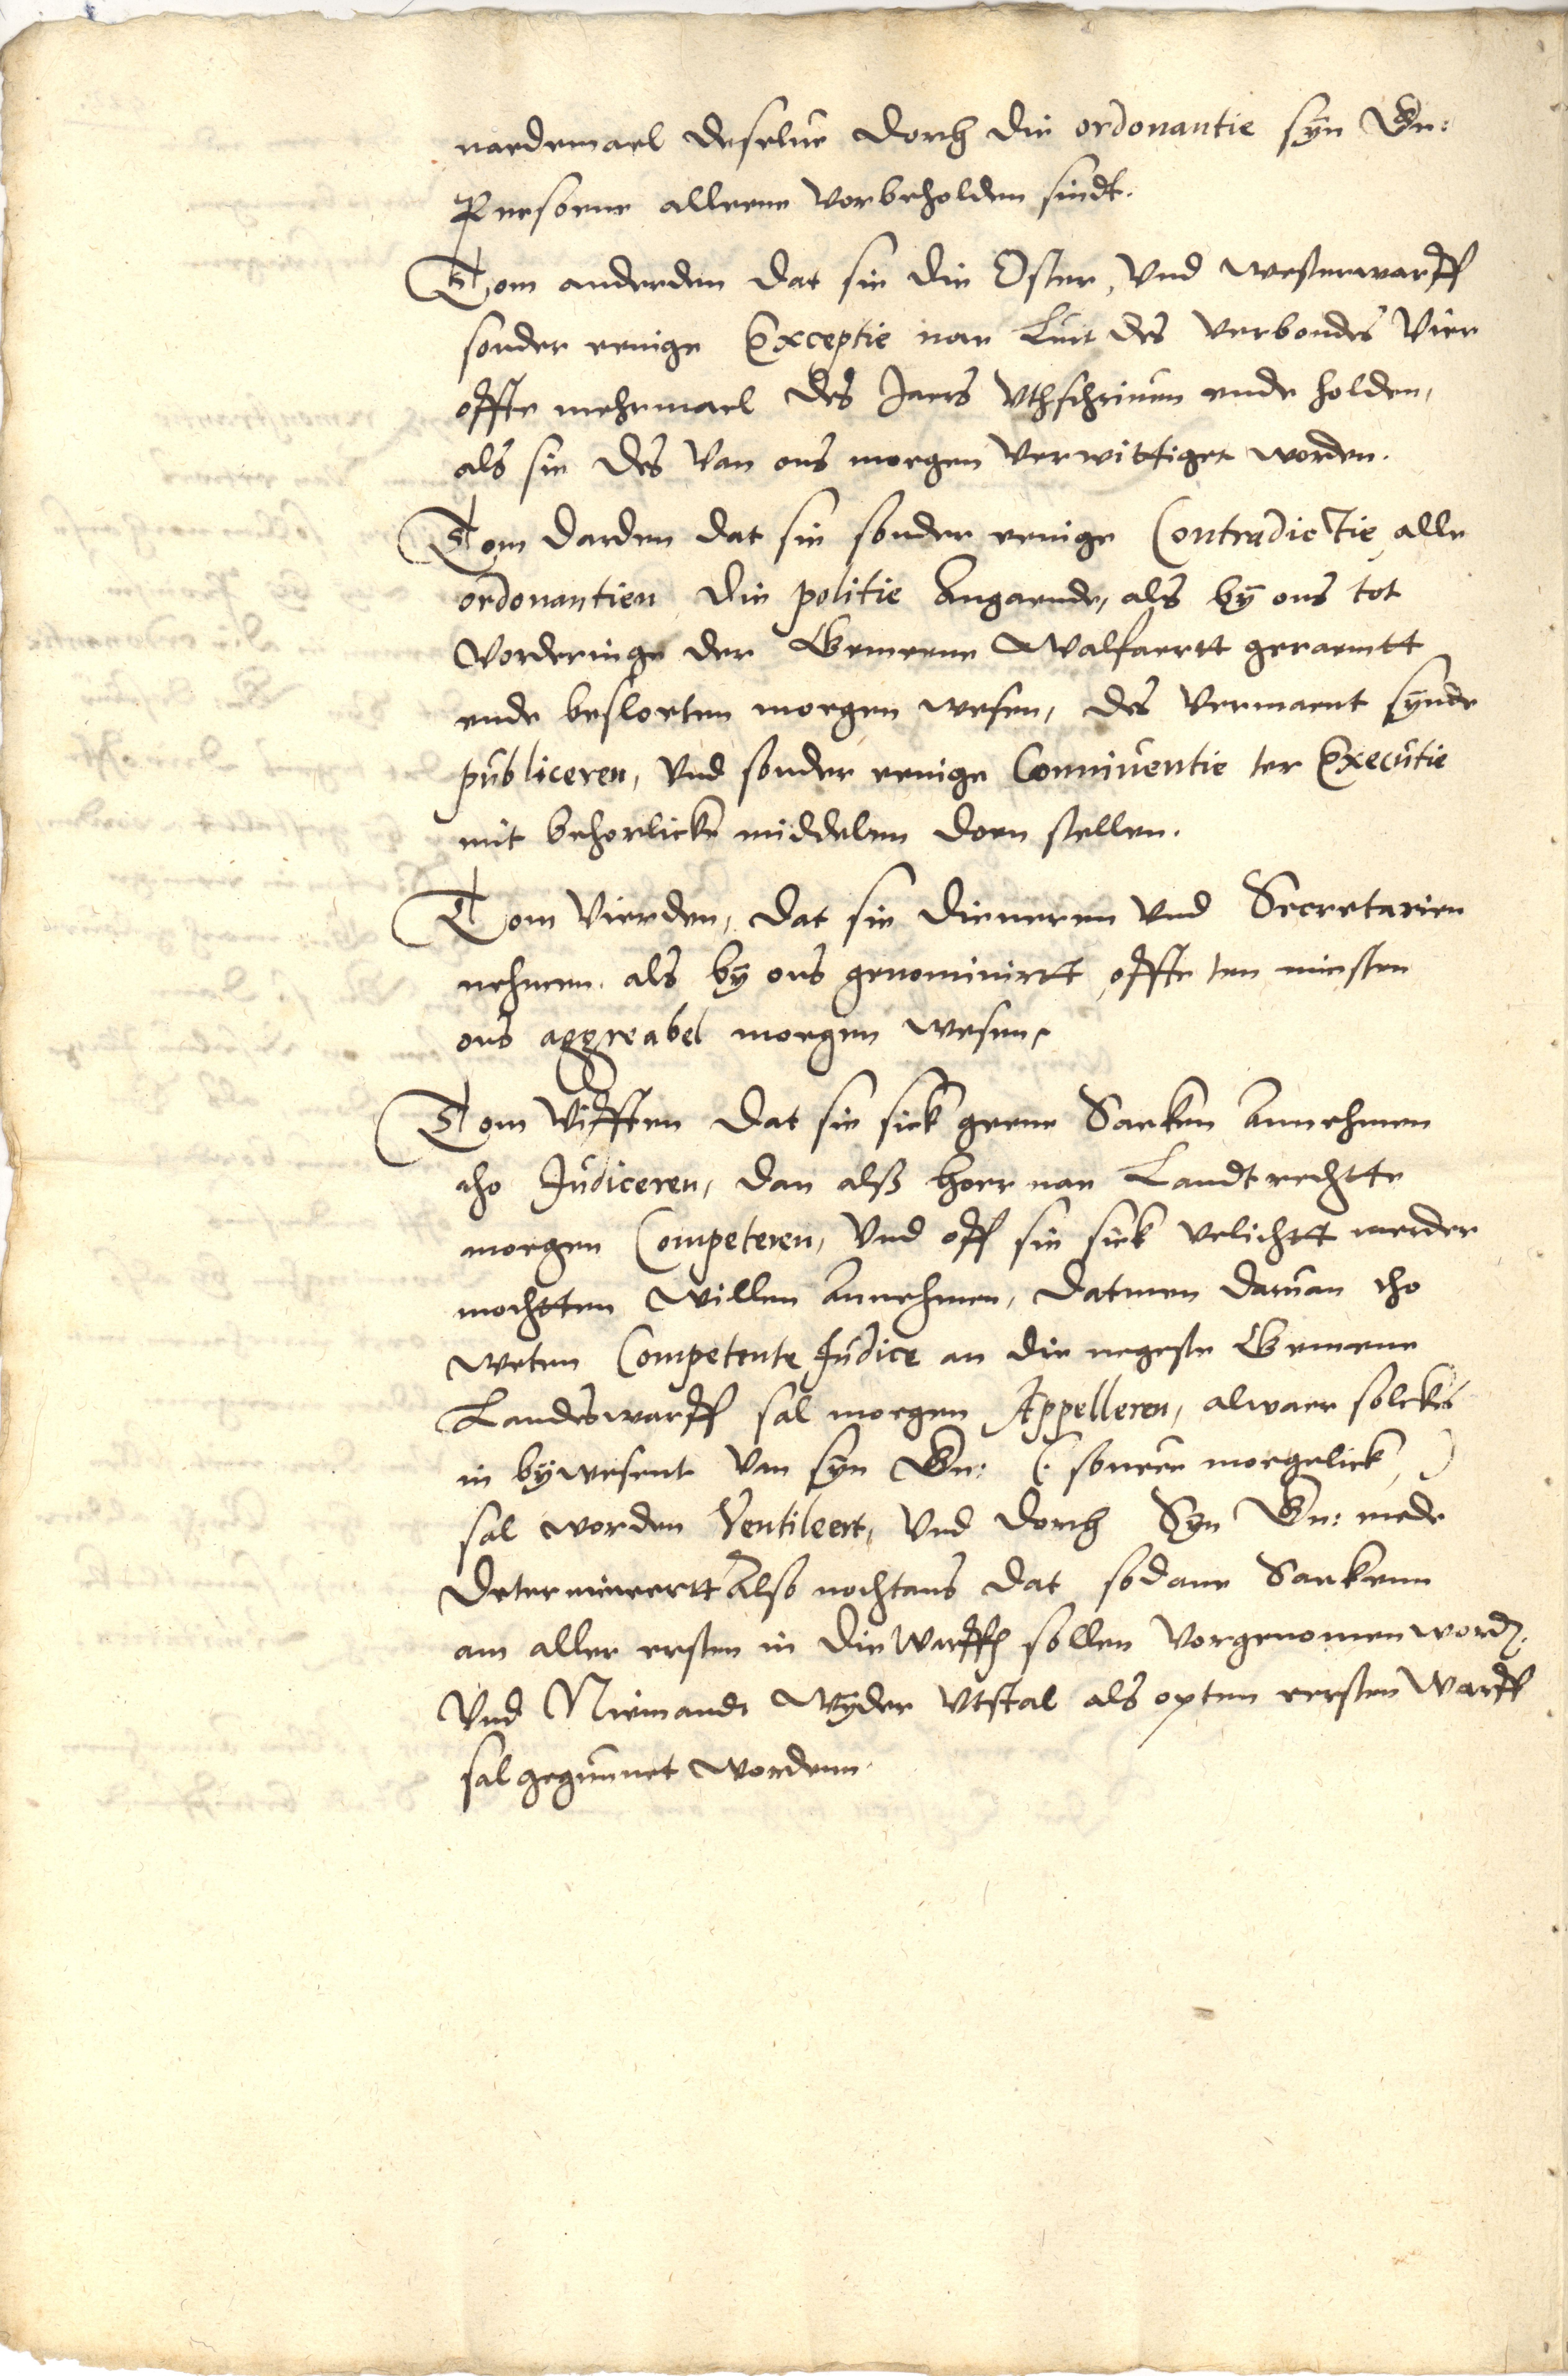 naedemael deselue dorch die ordonantie syn Gn:
Persoene alleene vorbeholden sindt.
Tom anderden dat sie die Oster, Vnd westerwarff
sonder eenige Exceptie nae Luit des verbondes Vier
offte mehrmael des Jaers Vthschriuen ende holden,
als sie des Van ons moegen Verwittiget worden.
Tom darden dat sie sonder eenige Contradictie, alle
ordonantien die politie Angaende, als by ons tot
Vorderinge der Gemeene Walfaertt geraemtt
ende besloeten moegen wesen, des Vermaent synde
publiceren, Vnd sonder eenige Conniuentie ter Executie
mit behorlicke middelen doen stellen.
Tom Vierden, dat sie dieneren Vnd Secretarien
nehmen. als by ons genominirtt, offte ten minsten
ons aggreabel moegen wesen.
Tom Vifften dat sie sick geene Saeken Annehmen
tho Judiceren, dan alss hoer nae Landtrechtte
moegen Competeren, Vnd off sie sick velichtt meerder
mochtten willen Annehmen, datmen daruan tho
weten Competente Judice an die negeste Gemeene
Landeswarff sal moegen Appelleren, alwaer solckes
in bywesent Van syn Gn: (: soueer moegelick )
sal worden Ventileert, Vnd dorch Syn Gn: mede
determineertt Also nochtans dat sodane Saekenn
am aller ersten in die Warffen sollen Vorgenomen word.
Vnd Niemandt Wyder Vtstal als opten eersten Warff
sal gegunnet wordenn.